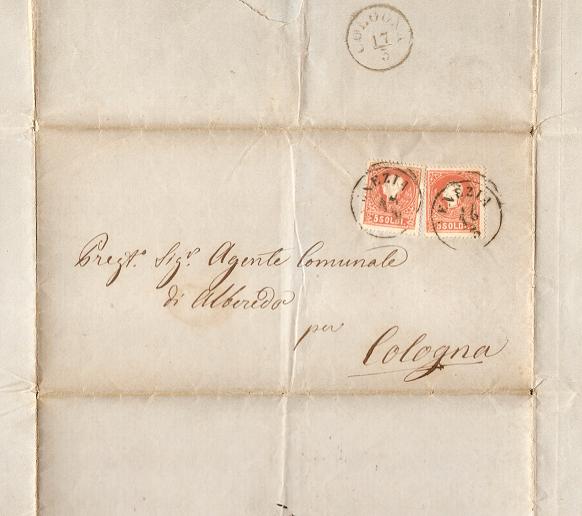 COLOGNA
17
5
VENEZIA
5 SOLDI
VENEZIA
16
5 SOLDI
Pregt.o Sigr. Agente Comunale
di Alberedo
per
Cologna